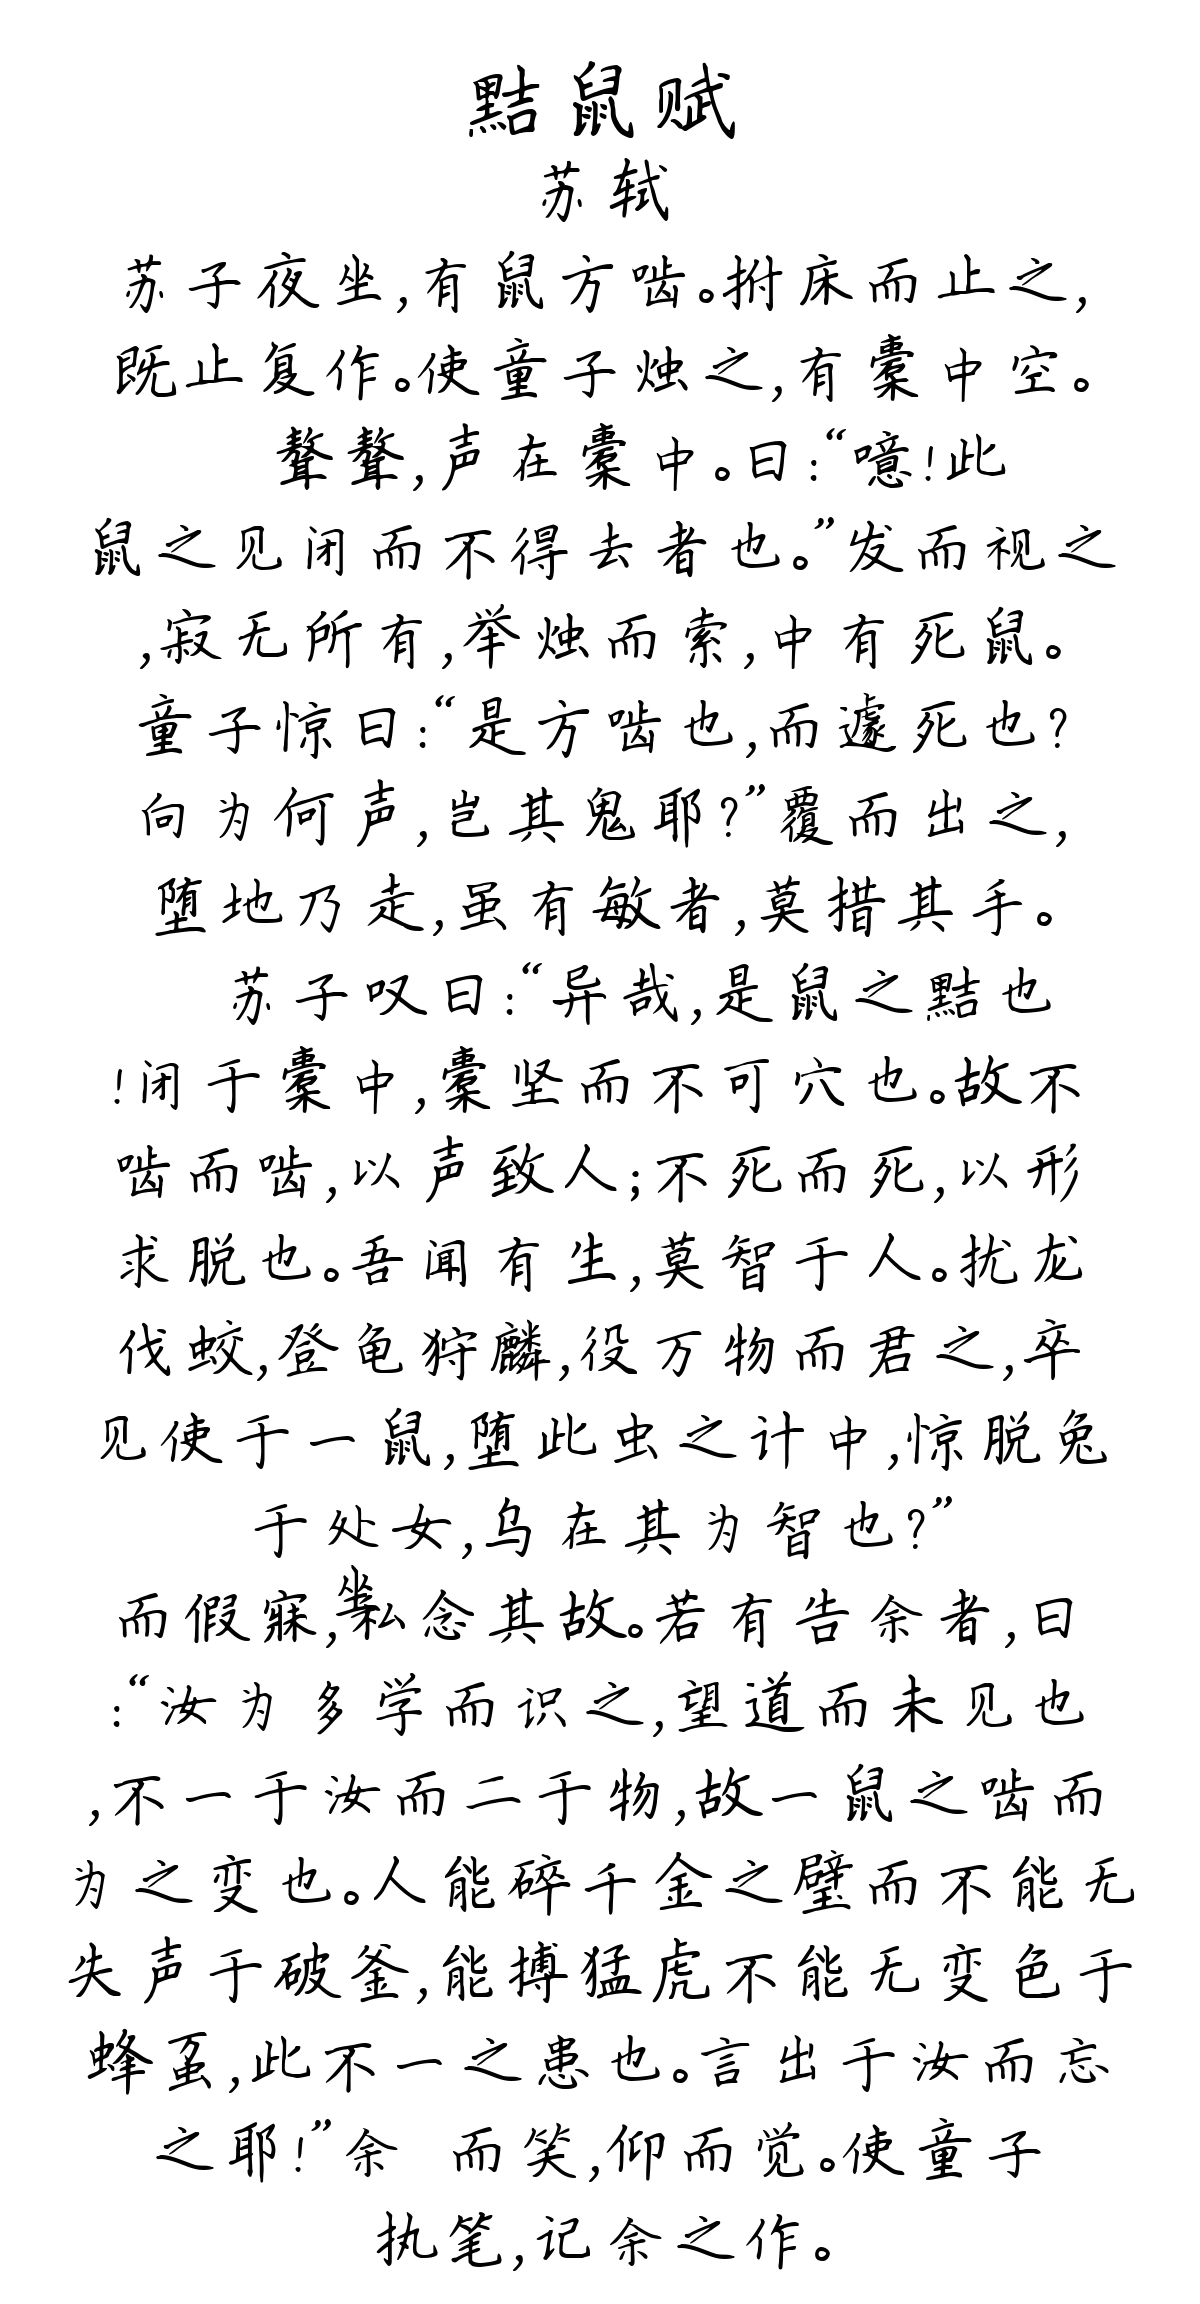 黠鼠赋
苏轼
苏子夜坐,有鼠方啮。拊床而止之,
既止复作。使童子烛之,有橐中空。
聱聱,声在橐中。曰:“噫!此
鼠之见闭而不得去者也。”发而视之
,寂无所有,举烛而索,中有死鼠。
童子惊曰:“是方啮也,而遽死也?
向为何声,岂其鬼耶?”覆而出之,
堕地乃走,虽有敏者,莫措其手。
苏子叹曰:“异哉,是鼠之黠也
!闭于橐中,橐坚而不可穴也。故不
啮而啮,以声致人;不死而死,以形
求脱也。吾闻有生,莫智于人。扰龙
伐蛟,登龟狩麟,役万物而君之,卒
见使于一鼠,堕此虫之计中,惊脱兔
于处女,乌在其为智也?”
而假寐,坐私念其故。若有告余者,曰
:“汝为多学而识之,望道而未见也
,不一于汝而二于物,故一鼠之啮而
为之变也。人能碎千金之璧而不能无
失声于破釜,能搏猛虎不能无变色于
蜂虿,此不一之患也。言出于汝而忘
之耶!”余 而笑,仰而觉。使童子
执笔,记余之作。